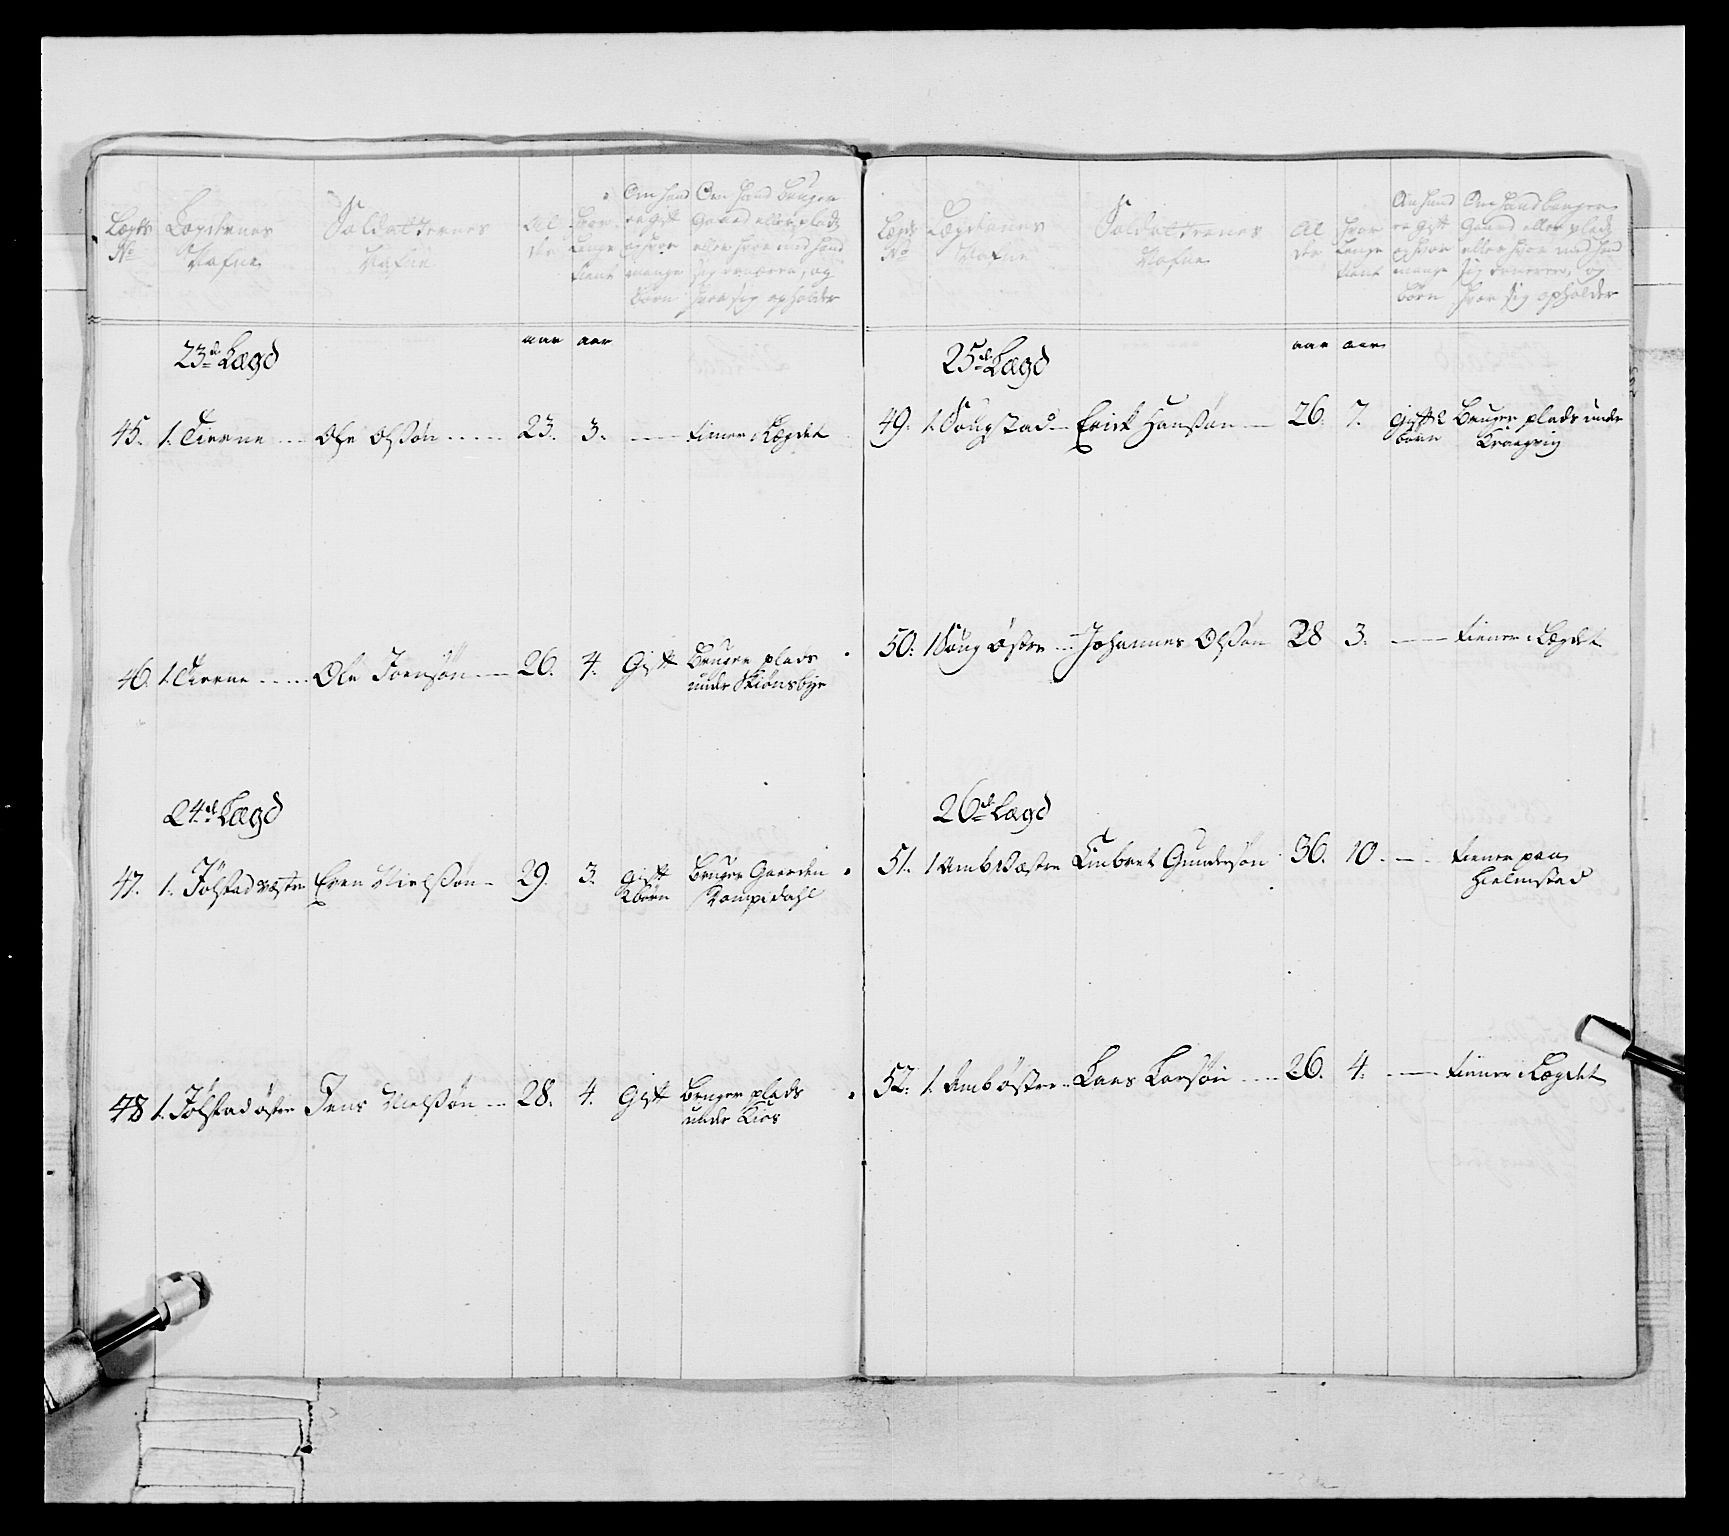 Lægds No
Lægdernes Nafne
Soldatternes Nafne
Alder
hvor Længe tient
Om hand er gift og hvor mange Børn
Om hand bruger Gaard eller plads eller hvor med hand sig ernærer, og hvor sig opholder
23de Lægd
aar aar
45. 1. Tierne Ole Olssøn 23. 3. tiener i Lægdet
46. 1. Tierne Ole Joensøn 26. 4. Gift Bruger plads
under Skiønsbye
24de Lægd
47. 1. Jølstad væstre Even Nielssøn 29. 3. gift Bruger Gaarden
børn Rompedahl
48 1. Jølstad østre Jens Nielssøn 28. 4. Gift bruger plads
under Kios
Lægds No
Lægdernes Nafne
Soldatternes Nafne
Alder
hvor Længe tient
Om hand er gift og hvor mange børn
Om hand bruger Gaard eller plads eller hvor med hand sig ernærer, og hvor sig opholder
25de Lægd
aar aar
49. 1. Sougstad Erick Hanssøn 26. 7. gift 2 Bruger plads under
børn Krogvig
50. 1 Soug østre Johannes Olssøn 28 3. tiener i Lægdet
26de Lægd
51. 1 Amb Væstre Embret Gundersøn 36. 10. tiener paa
Hielmstad
52. 1. Amb østre Lars Larsøn 26. 4. tiener i Lægdet